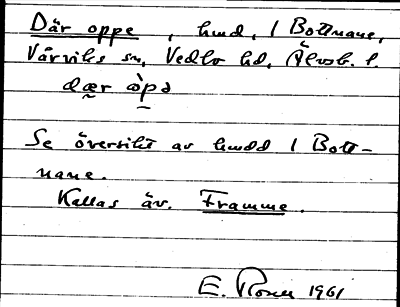 Där oppe, hmd, 1 Bottnane,
Vårviks sn, Vedbo hd, Älvsb. l.
dær òpə
Se översikt av hmdd 1 Bott-
nane.
Kallas äv. Framme.
E. Rosell 1961